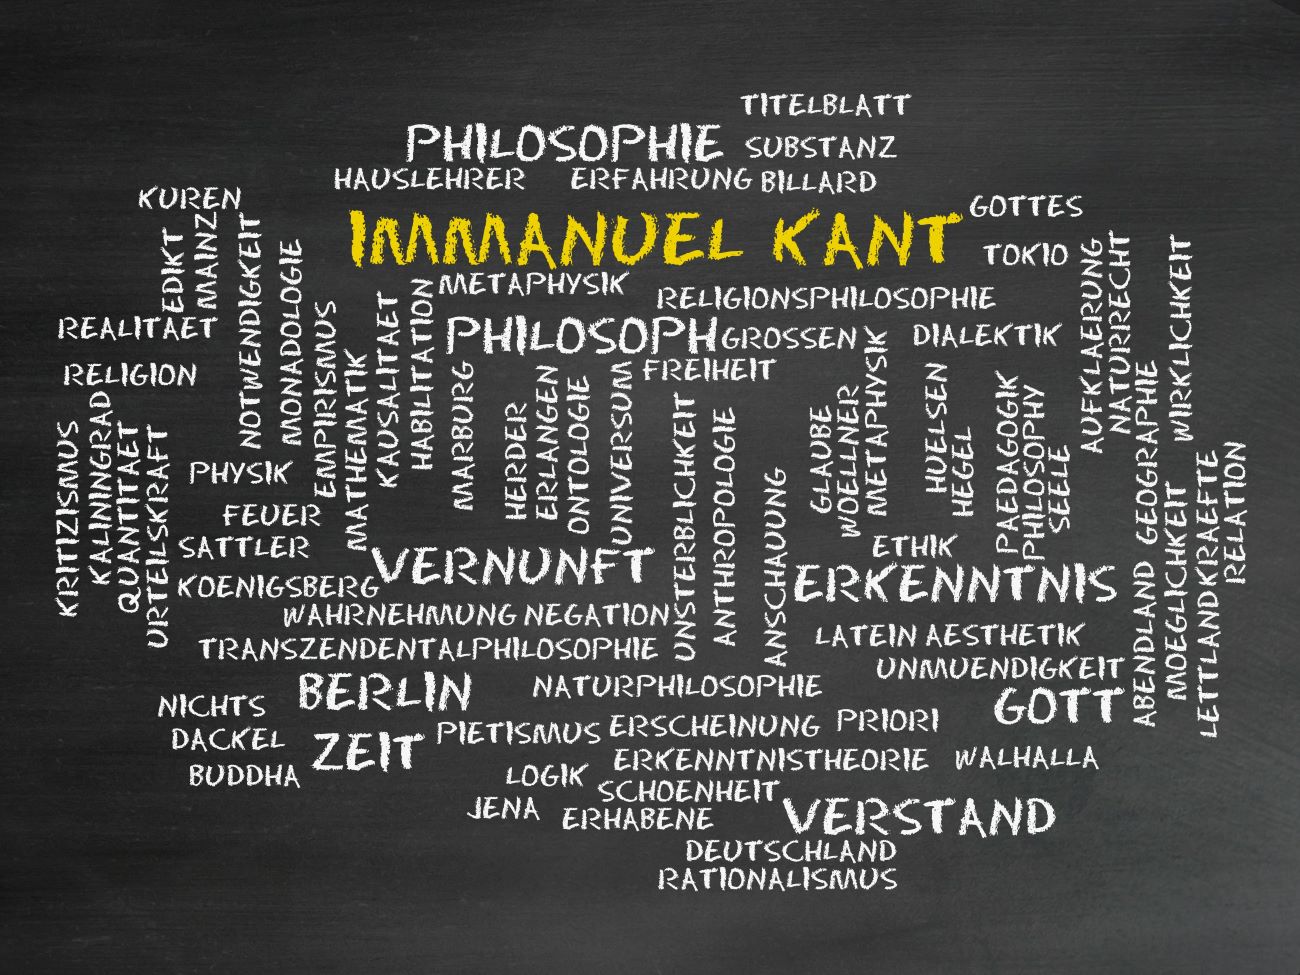 TITELBLATT
PHILOSOPHIE
SUBSTANZ
HAUSLEHRER
ERFAHRUNG
BILLARD
KUREN
GOTTES
IMMANUEL KANT
TOKIO
EDIKT
MAINZ
NOTWENDIGKEIT
MONADOLOGIE
METAPHYSIK
RELIGIONSPHILOSOPHIE
REALITAET
PHILOSOPH
GROSSEN
DIALEKTIK
RELIGION
FREIHEIT
EMPIRISMUS
MATHEMATIK
KAUSALITAET
HABILITATION
MARBURG
HERDER
ERLANGEN
ONTOLOGIE
UNIVERSUM
UNSTERBLICHKEIT
ANTHROPOLOGIE
ANSCHAUUNG
GLAUBE
WOELLNER
METAPHYSIK
HUELSEN
HEGEL
PAEDAGOGIK
PHILOSOPHY
SEELE
AUFKLAERUNG
NATURRECHT
GEOGRAPHIE
WIRKLICHKEIT
KRITIZISMUS
KALININGRAD
QUANTITAET
URTEILSKRAFT
PHYSIK
FEUER
SATTLER
KOENIGSBERG
VERNUNFT
ETHIK
ERKENNTNIS
ABENDLAND
MOEGLICHKEIT
LETTLANDKRAEFTE
RELATION
WAHRNEHMUNG
NEGATION
TRANSZENDENTALPHILOSOPHIE
LATEIN
AESTHETIK
UNMUENDIGKEIT
BERLIN
NATURPHILOSOPHIE
NICHTS
GOTT
DACKEL
ZEIT
PIETISMUS
ERSCHEINUNG
PRIORI
BUDDHA
LOGIK
ERKENNTNISTHEORIE
WALHALLA
SCHOENHEIT
JENA
ERHABENE
VERSTAND
DEUTSCHLAND
RATIONALISMUS